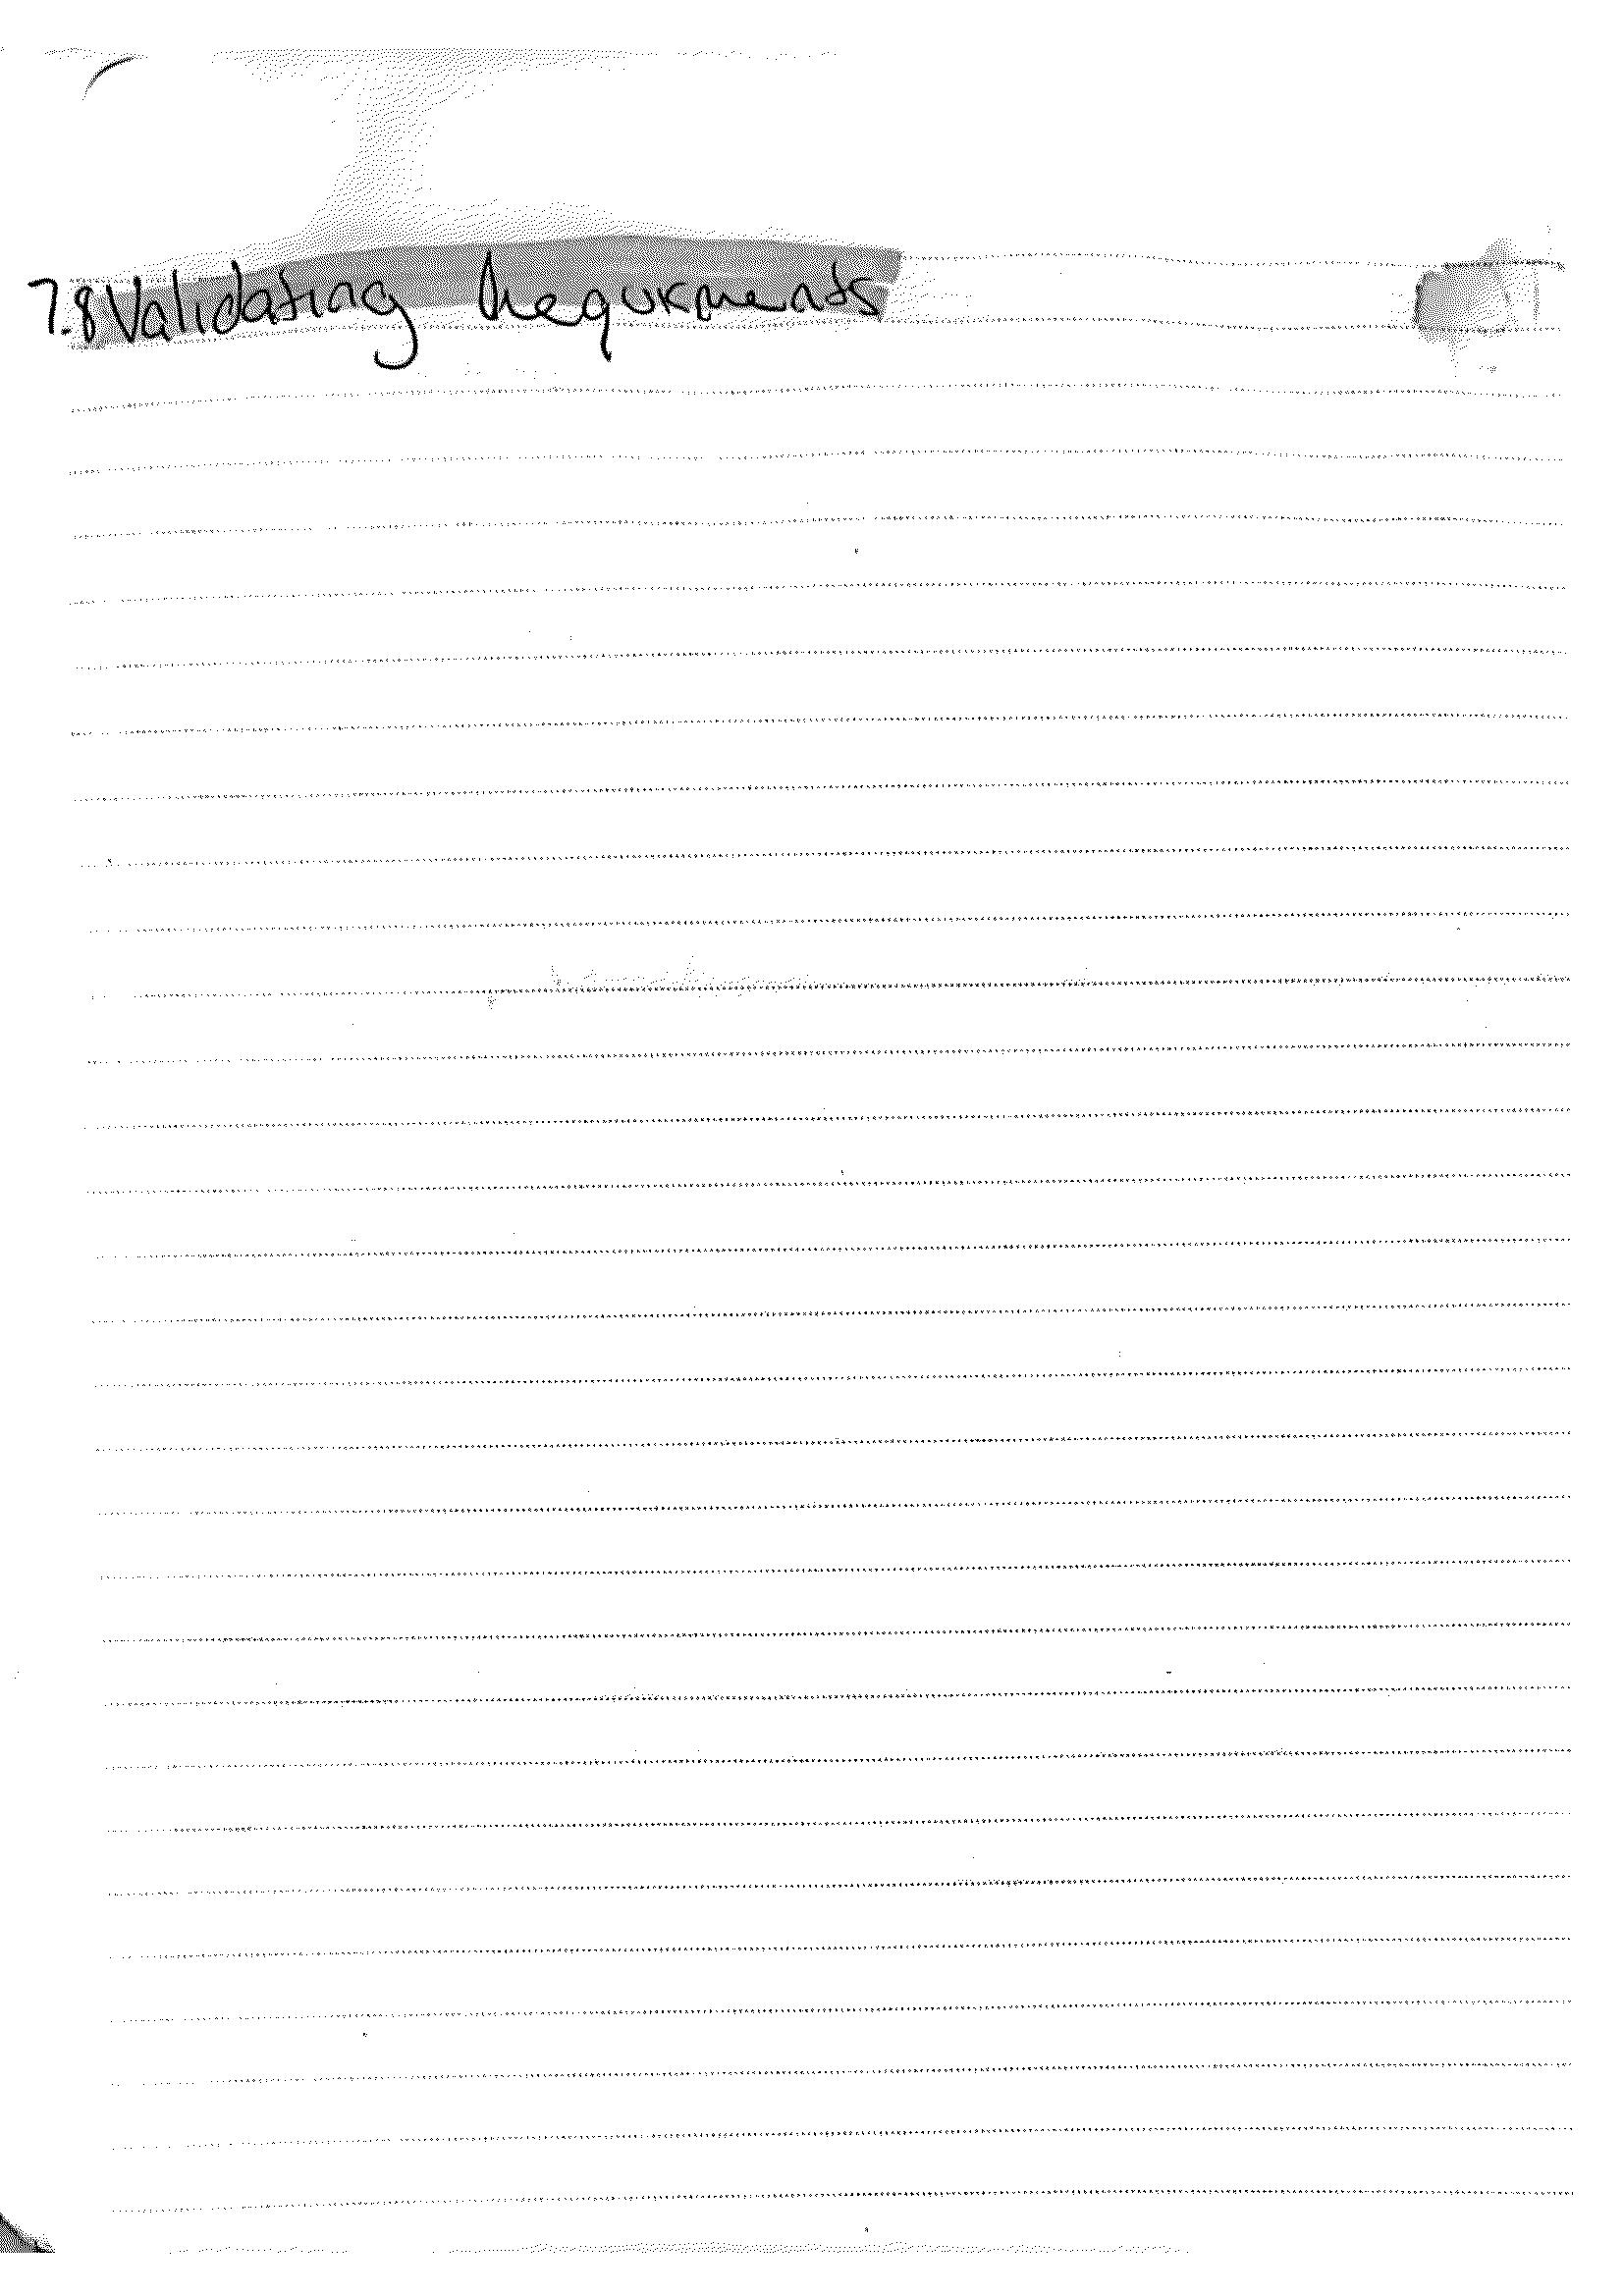 7.8 Validating Requirments